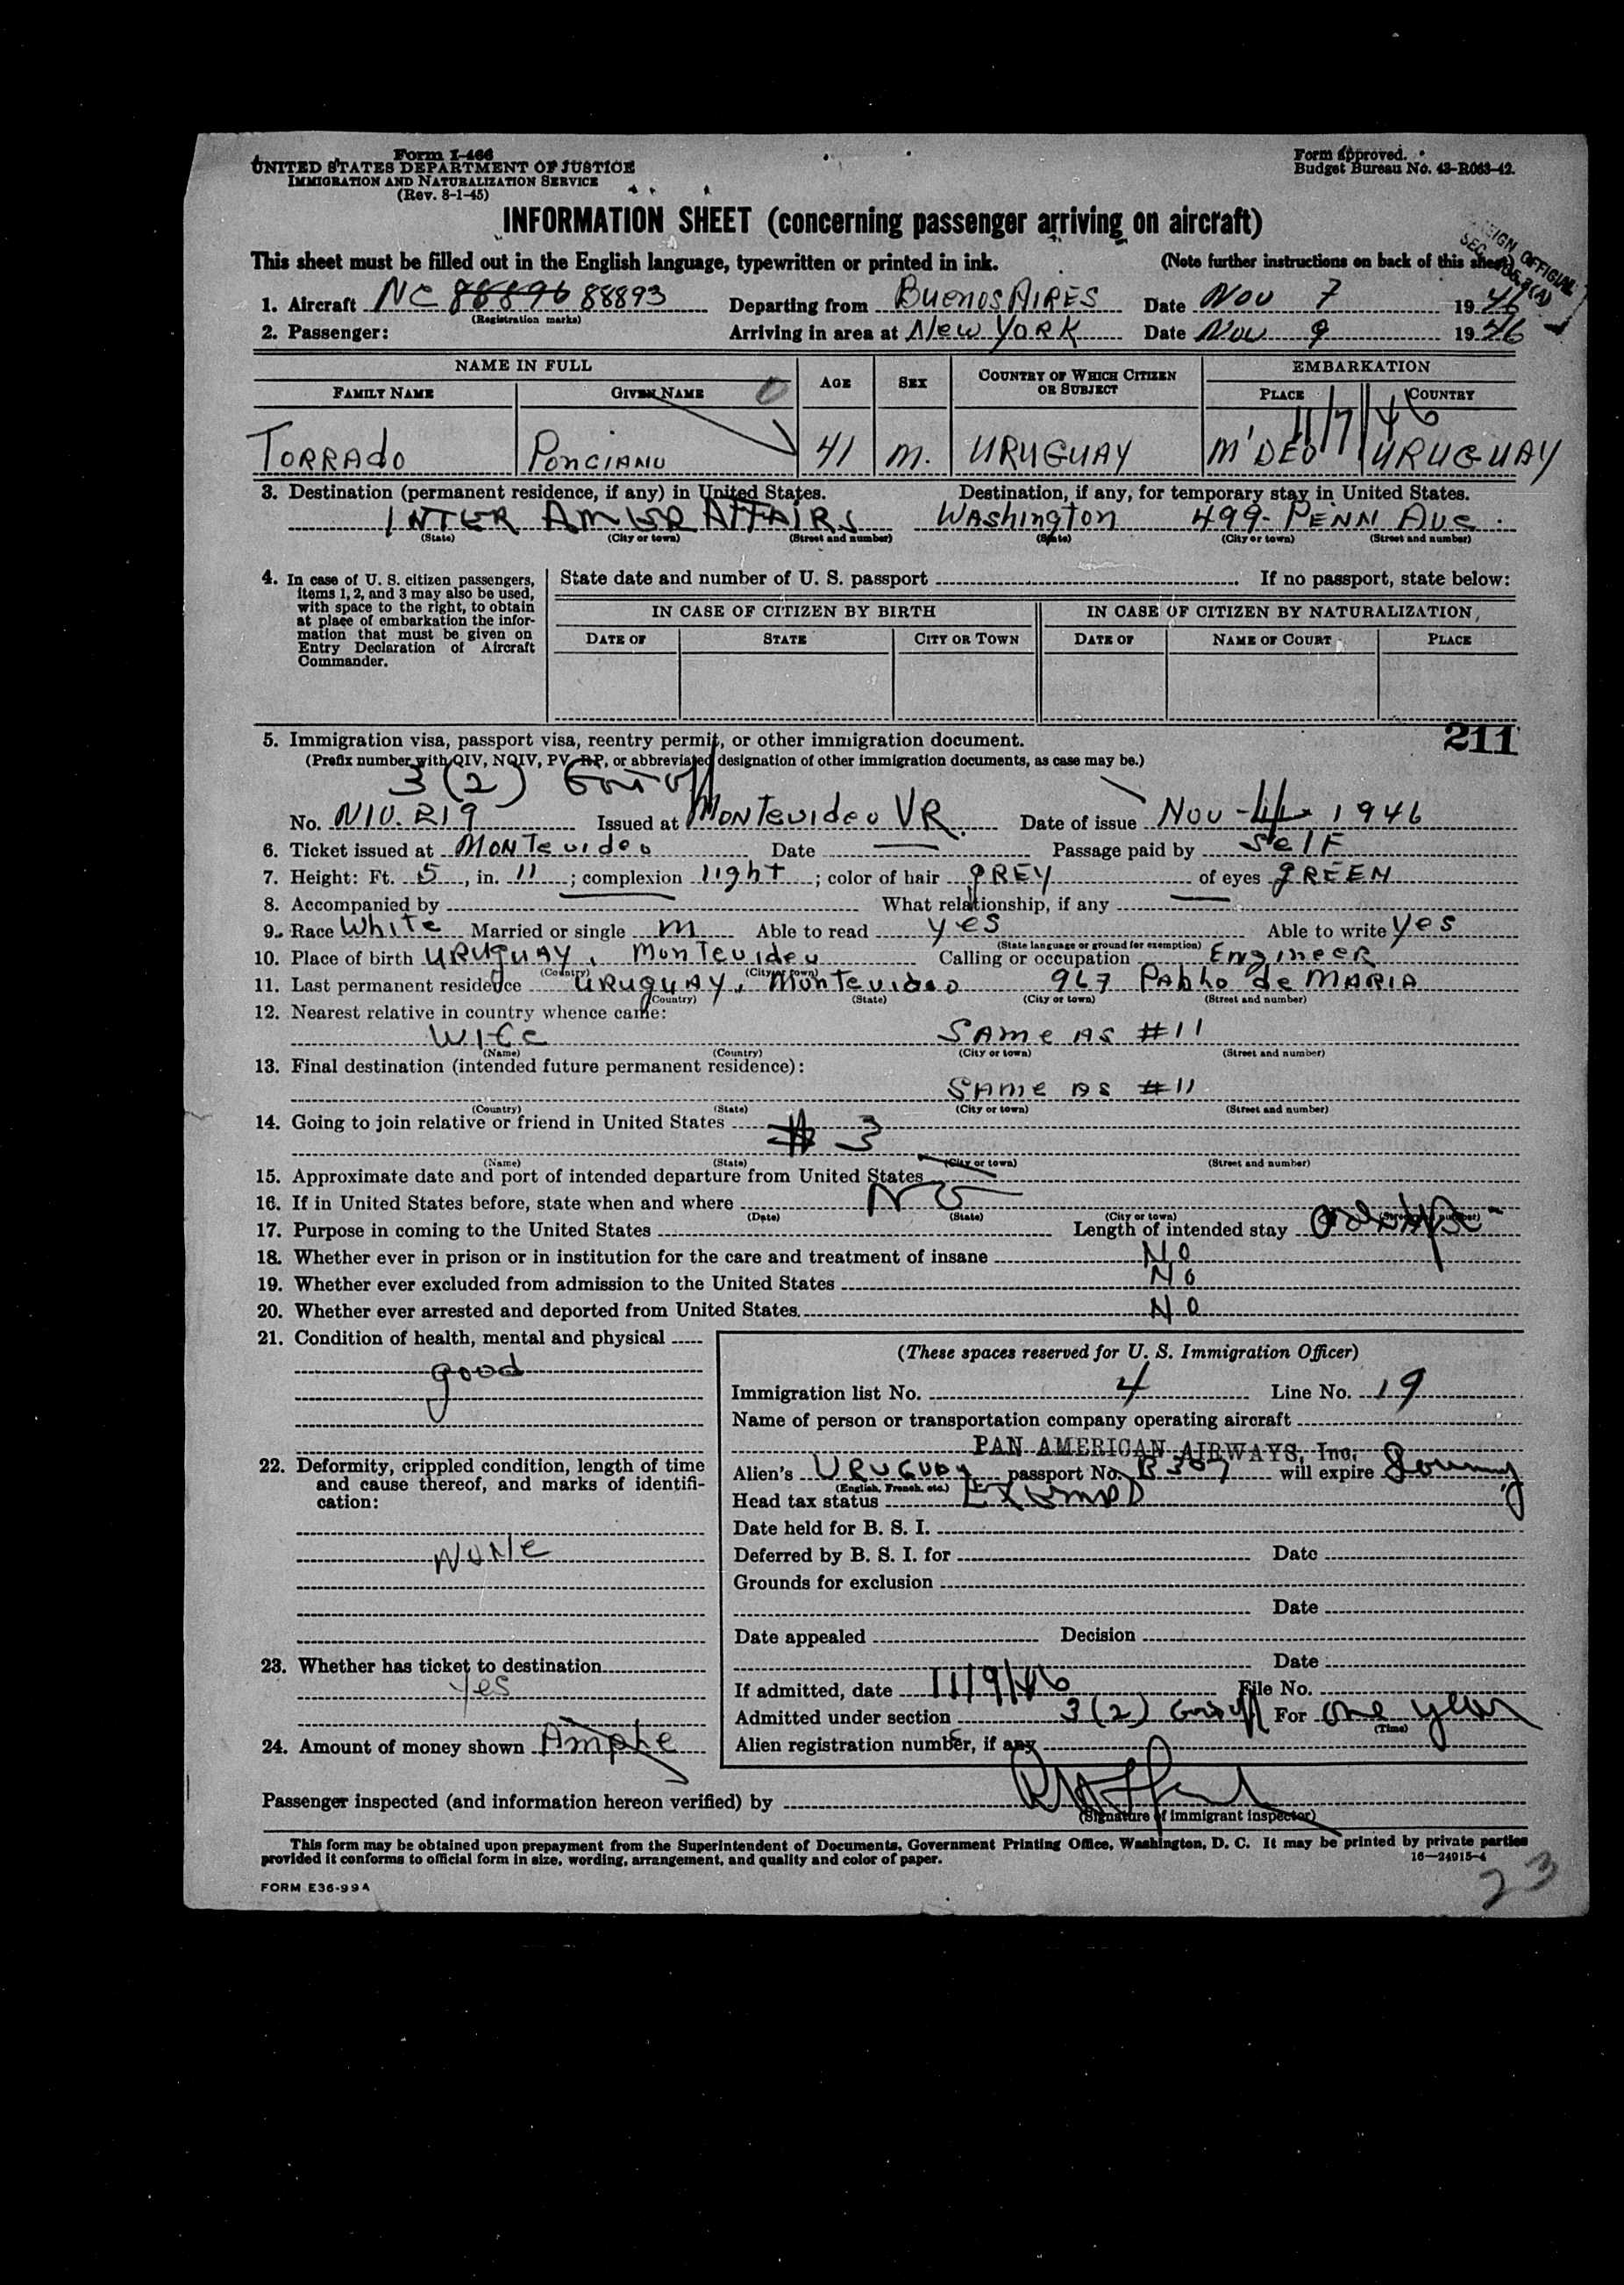 Form I-466
UNITED STATES DEPARTMENT OF JUSTICE
IMMIGRATION AND NATURALIZATION SERVICE
(Rev. 8-1-45)
Form approved.
Budget Bureau No. 43-R063-42.
INFORMATION SHEET (concerning passenger arriving on aircraft)
This sheet must be filled out in the English language, typewritten or printed in ink. (Note further instructions on back of this sheet)
OFFICIAL
1. Aircraft NC 88896 88893 Departing from BUENOS AIRES Date Nov 7 1946
(Registration marks)
2. Passenger: Arriving in area at New YORK Date Nov 9 1946
NAME IN FULL AGE SEX COUNTRY OF WHICH CITIZEN OR SUBJECT EMBARKATION
FAMILY NAME GIVEN NAME PLACE COUNTRY
11/7/46
TORRADO PONCIANO 41 M. URUGUAY M'DEO URUGUAY
3. Destination (permanent residence, if any) in United States. Destination, if any, for temporary stay in United States.
INTER AMER AFFAIRS Washington 499 PENN Ave.
(State) (City or town) (Street and number) (State) (City or town) (Street and number)
4. In case of U. S. citizen passengers, items 1, 2, and 3 may also be used, with space to the right, to obtain at place of embarkation the information that must be given on Entry Declaration of Aircraft Commander.
State date and number of U. S. passport If no passport, state below:
IN CASE OF CITIZEN BY BIRTH IN CASE OF CITIZEN BY NATURALIZATION
DATE OF STATE CITY OR TOWN DATE OF NAME OF COURT PLACE
211
5. Immigration visa, passport visa, reentry permit, or other immigration document.
(Prefix number with QIV, NQIV, PV, RP, or abbreviated designation of other immigration documents, as case may be.)
3(2)
No. NIV. 219 Issued at Montevideo VR. Date of issue Nov - 4 1946
6. Ticket issued at Montevideo Date Passage paid by Self
7. Height: Ft. 5, in. 11; complexion light; color of hair gREY of eyes gREEN
8. Accompanied by What relationship, if any
9. Race White Married or single m Able to read yes Able to write yes
(State language or ground for exemption)
10. Place of birth URUgUAY, Montevideo Calling or occupation EngineeR
(Country) (City or town)
11. Last permanent residence URUgUAY, Montevideo 967 Pablo de MARIA
(Country) (State) (City or town) (Street and number)
12. Nearest relative in country whence came:
Wife SAme AS #11
(Name) (Country) (City or town) (Street and number)
13. Final destination (intended future permanent residence):
SAme AS #11
(Country) (State) (City or town) (Street and number)
14. Going to join relative or friend in United States # 3
(Name) (State) (City or town) (Street and number)
15. Approximate date and port of intended departure from United States
16. If in United States before, state when and where NO
(Date) (State) (City or town) (Street and number)
17. Purpose in coming to the United States Length of intended stay
18. Whether ever in prison or in institution for the care and treatment of insane No
19. Whether ever excluded from admission to the United States No
20. Whether ever arrested and deported from United States No
21. Condition of health, mental and physical
good
22. Deformity, crippled condition, length of time and cause thereof, and marks of identification:
NoNe
23. Whether has ticket to destination
yes
24. Amount of money shown Ample
(These spaces reserved for U. S. Immigration Officer)
Immigration list No. 4 Line No. 19
Name of person or transportation company operating aircraft
PAN AMERICAN AIRWAYS, Inc.
Alien's URUGUAY passport No. B 387 will expire
(English, French, etc.)
Head tax status
Date held for B. S. I.
Deferred by B. S. I. for Date
Grounds for exclusion
Date
Date appealed Decision
Date
If admitted, date 11/9/46 File No.
Admitted under section 3(2) For one year
(Time)
Alien registration number, if any
Passenger inspected (and information hereon verified) by
(Signature of immigrant inspector)
This form may be obtained upon prepayment from the Superintendent of Documents, Government Printing Office, Washington, D. C. It may be printed by private parties
provided it conforms to official form in size, wording, arrangement, and quality and color of paper. 16—24915-4
FORM E36-99A
23